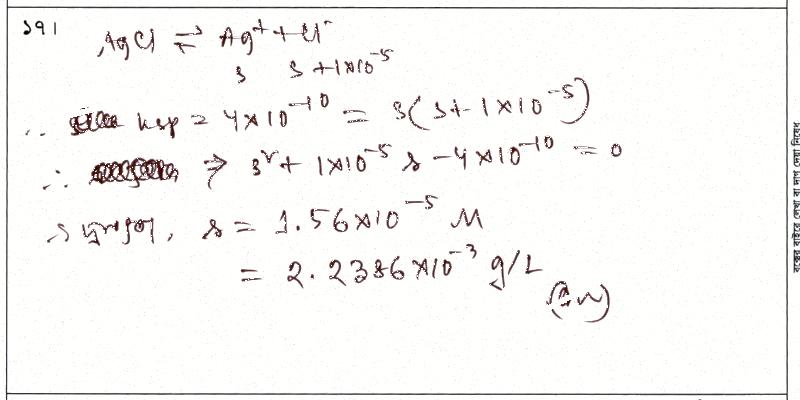 ১৭।
AgCl ⇌ Ag⁺ + Cl⁻
s s + 1×10⁻⁵
∴ ksp = 4×10⁻¹⁰ = s(s + 1×10⁻⁵)
∴ ⇒ s² + 1×10⁻⁵ s − 4×10⁻¹⁰ = 0
∴ দ্রাব্যতা, s = 1.56×10⁻⁵ M
= 2.2386×10⁻³ g/L
(Ans)
বক্সের বাইরে লেখা বা দাগ দেয়া নিষেধ